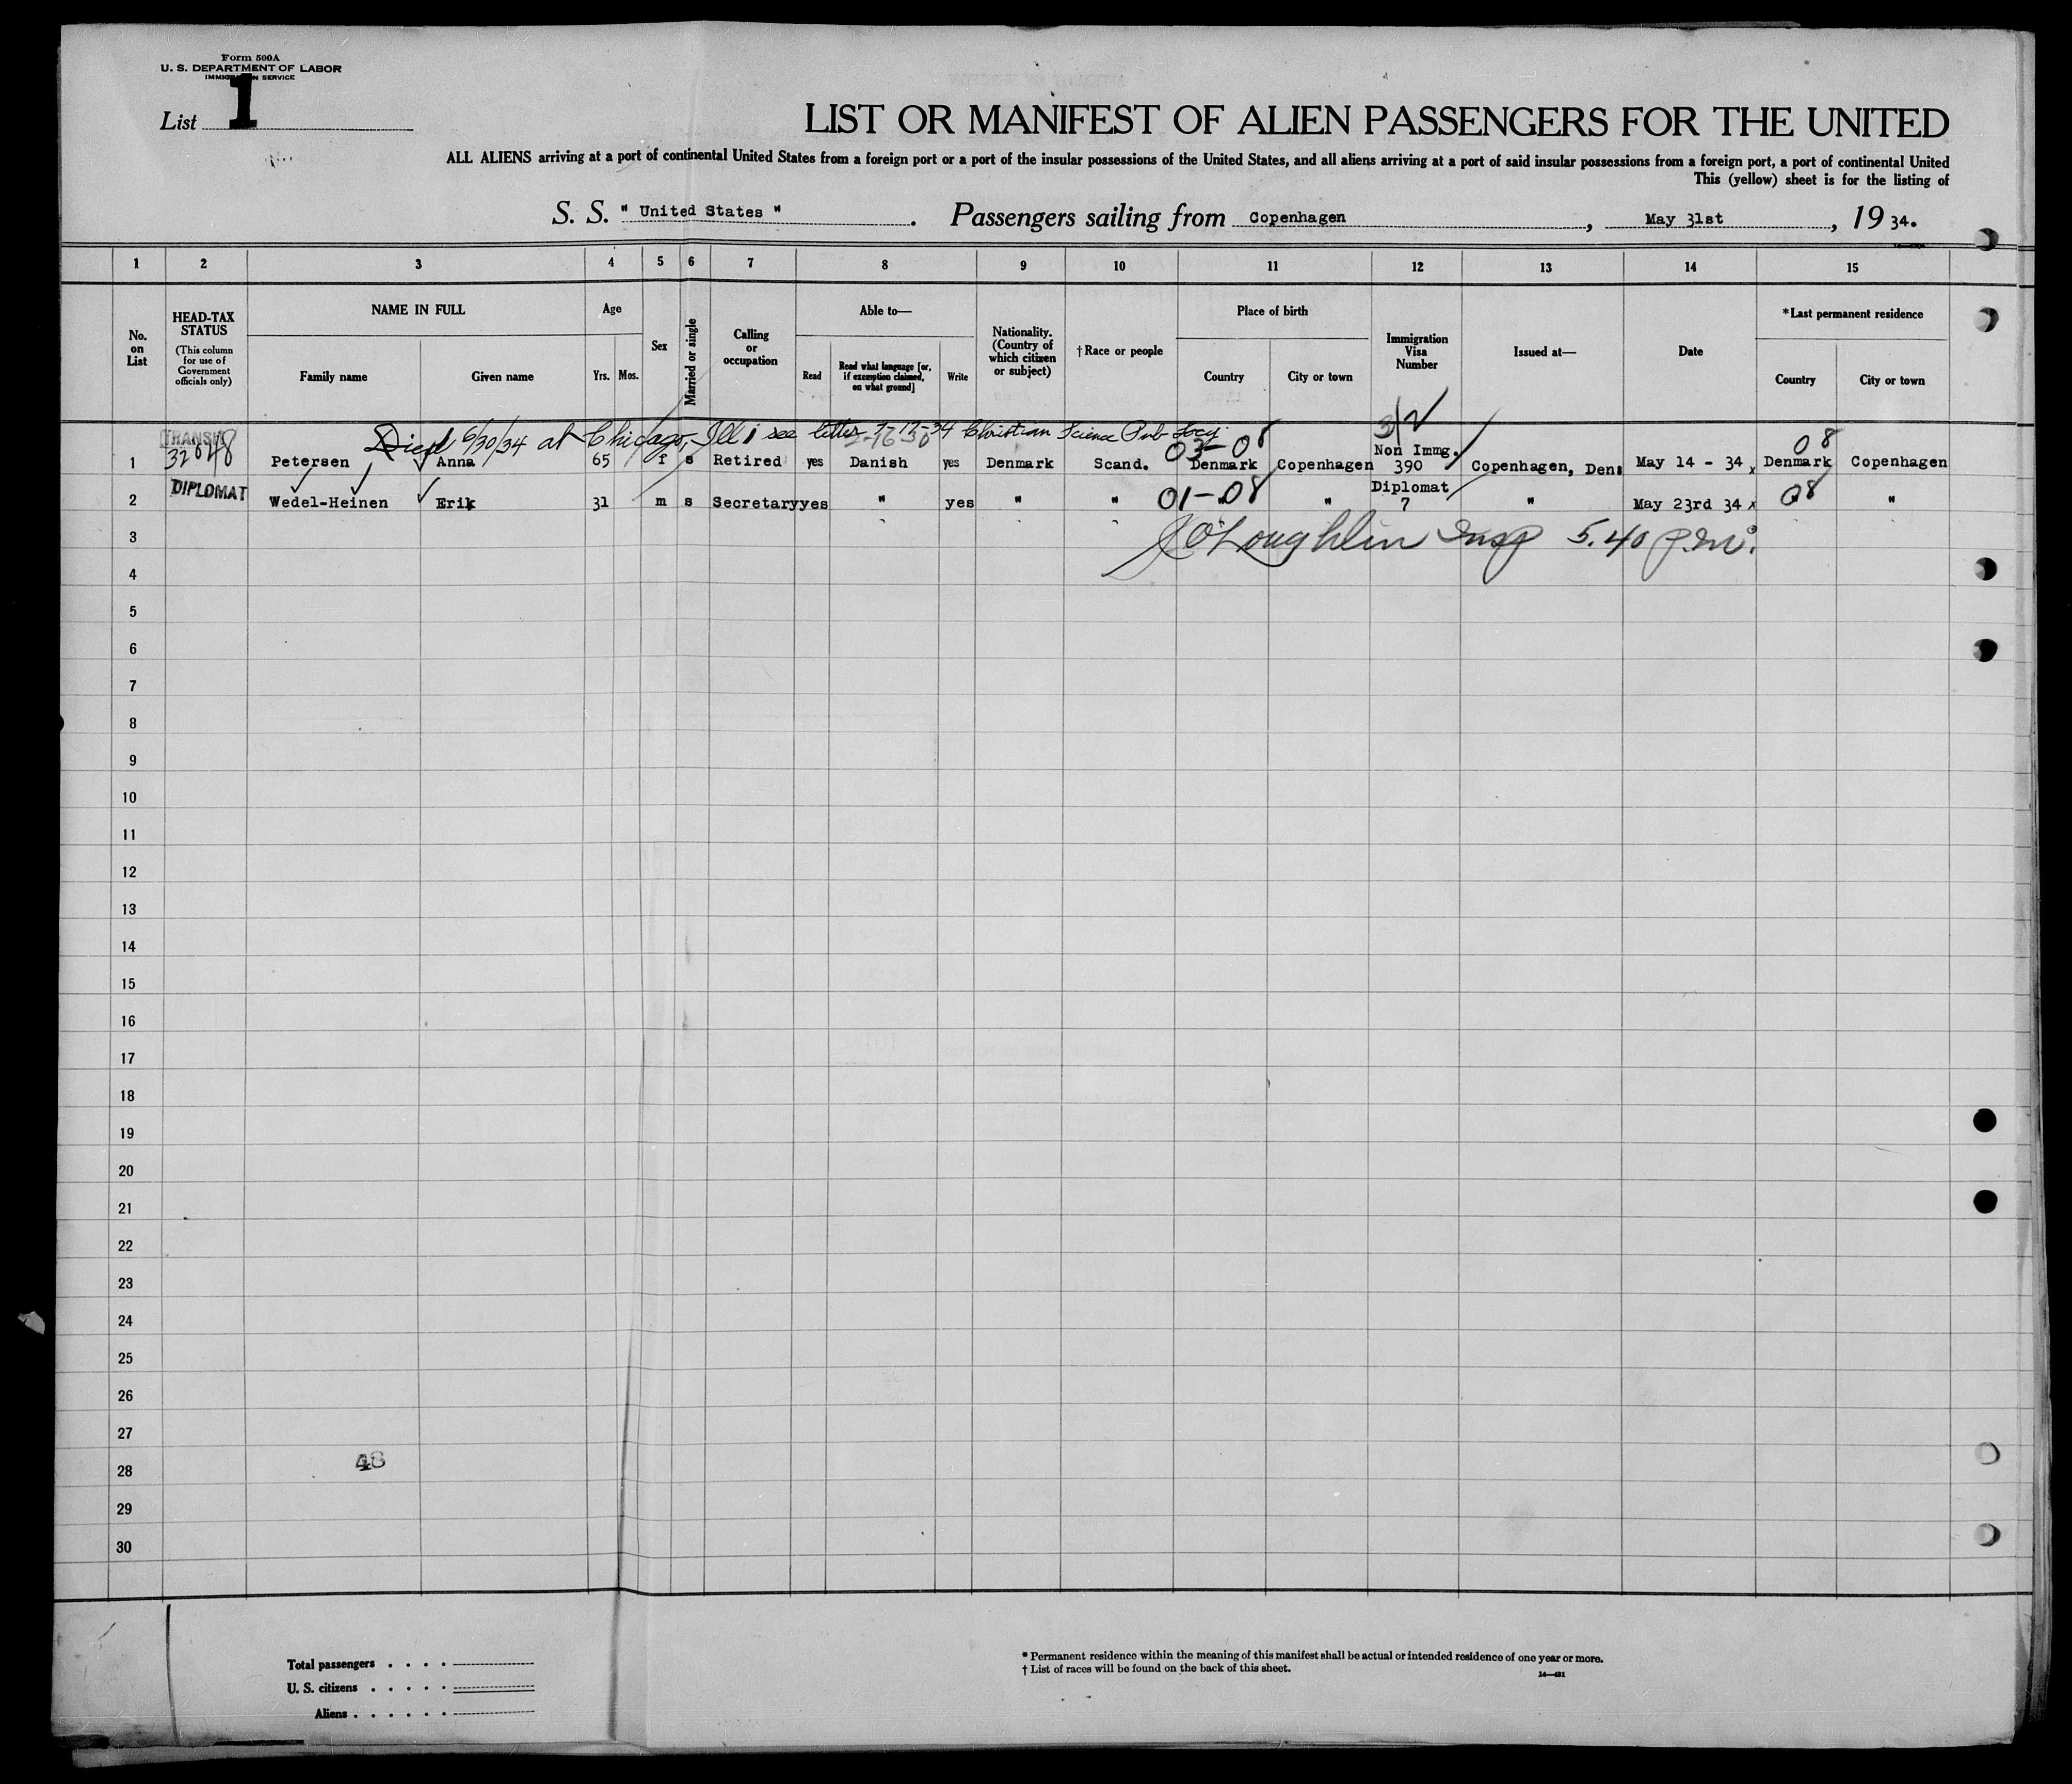 Form 500A
U. S. DEPARTMENT OF LABOR
IMMIGRATION SERVICE
List 1
LIST OR MANIFEST OF ALIEN PASSENGERS FOR THE UNITED
ALL ALIENS arriving at a port of continental United States from a foreign port or a port of the insular possessions of the United States, and all aliens arriving at a port of said insular possessions from a foreign port, a port of continental United
This (yellow) sheet is for the listing of
S. S. " United States " . Passengers sailing from Copenhagen , May 31st , 19 34.
1 2 3 4 5 6 7 8 9 10 11 12 13 14 15
No. on List
HEAD-TAX STATUS
(This column for use of Government officials only)
NAME IN FULL
Family name Given name
Age
Yrs. Mos.
Sex
Married or single
Calling or occupation
Able to—
Read
Read what language [or, if exemption claimed, on what ground]
Write
Nationality. (Country of which citizen or subject)
†Race or people
Place of birth
Country City or town
Immigration Visa Number
Issued at—
Date
*Last permanent residence
Country City or town
Died 6/30/34 at Chicago, Ill see letter 7-12-34 Christian Science Pub Socy.
03-08 08
1 Petersen Anna 65 f s Retired yes Danish yes Denmark Scand. Denmark Copenhagen Non Immg. 390 Copenhagen, Den: May 14 - 34 x Denmark Copenhagen
DIPLOMAT
2 Wedel-Heinen Erik 31 m s Secretary yes " yes " " 01-08 " Diplomat 7 " May 23rd 34 x 08 "
3 O'Loughlin Insp 5.40 p.m.
4
5
6
7
8
9
10
11
12
13
14
15
16
17
18
19
20
21
22
23
24
25
26
27
28
48
29
30
Total passengers . . . .
U. S. citizens . . . . .
Aliens . . . . . .
* Permanent residence within the meaning of this manifest shall be actual or intended residence of one year or more.
† List of races will be found on the back of this sheet.